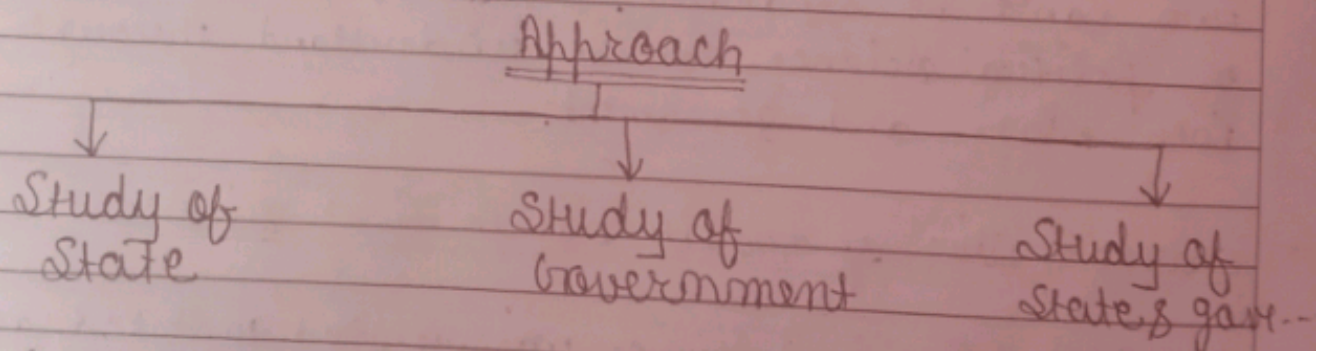 Approach
Study of
State
Study of
Government
Study of
State & gov..